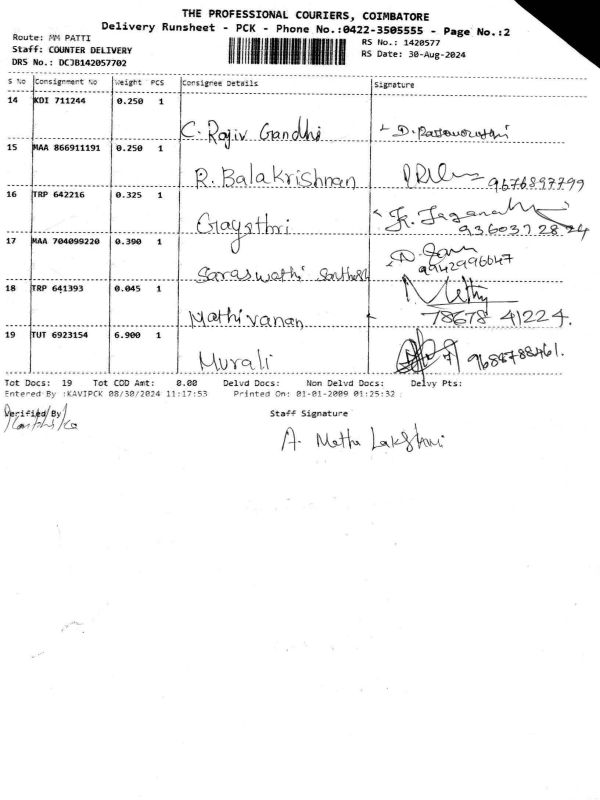 THE PROFESSIONAL COURIERS, COIMBATORE
Delivery Runsheet - PCK - Phone No.:0422-3505555 - Page No.:2
Route: MM PATTI
RS No.: 1420577
Staff: COUNTER DELIVERY
RS Date: 30-Aug-2024
DRS No.: DCJB142057702
S No Consignment No Weight PCS Consignee Details Signature
14 KDI 711244 0.250 1 C. Rajiv Gandhi
15 MAA 866911191 0.250 1 R. Balakrishnan 9676897799
16 TRP 642216 0.325 1 Gayathri
17 MAA 704099220 0.390 1 Saraswathi Santhosh
18 TRP 641393 0.045 1 Mathivanan 78678 41224.
19 TUT 6923154 6.900 1 Murali
Tot Docs: 19 Tot COD Amt: 0.00 Delvd Docs: Non Delvd Docs: Delvy Pts:
Entered By :KAVIPCK 08/30/2024 11:17:53 Printed On: 01-01-2009 01:25:32
Verified By Staff Signature
A.